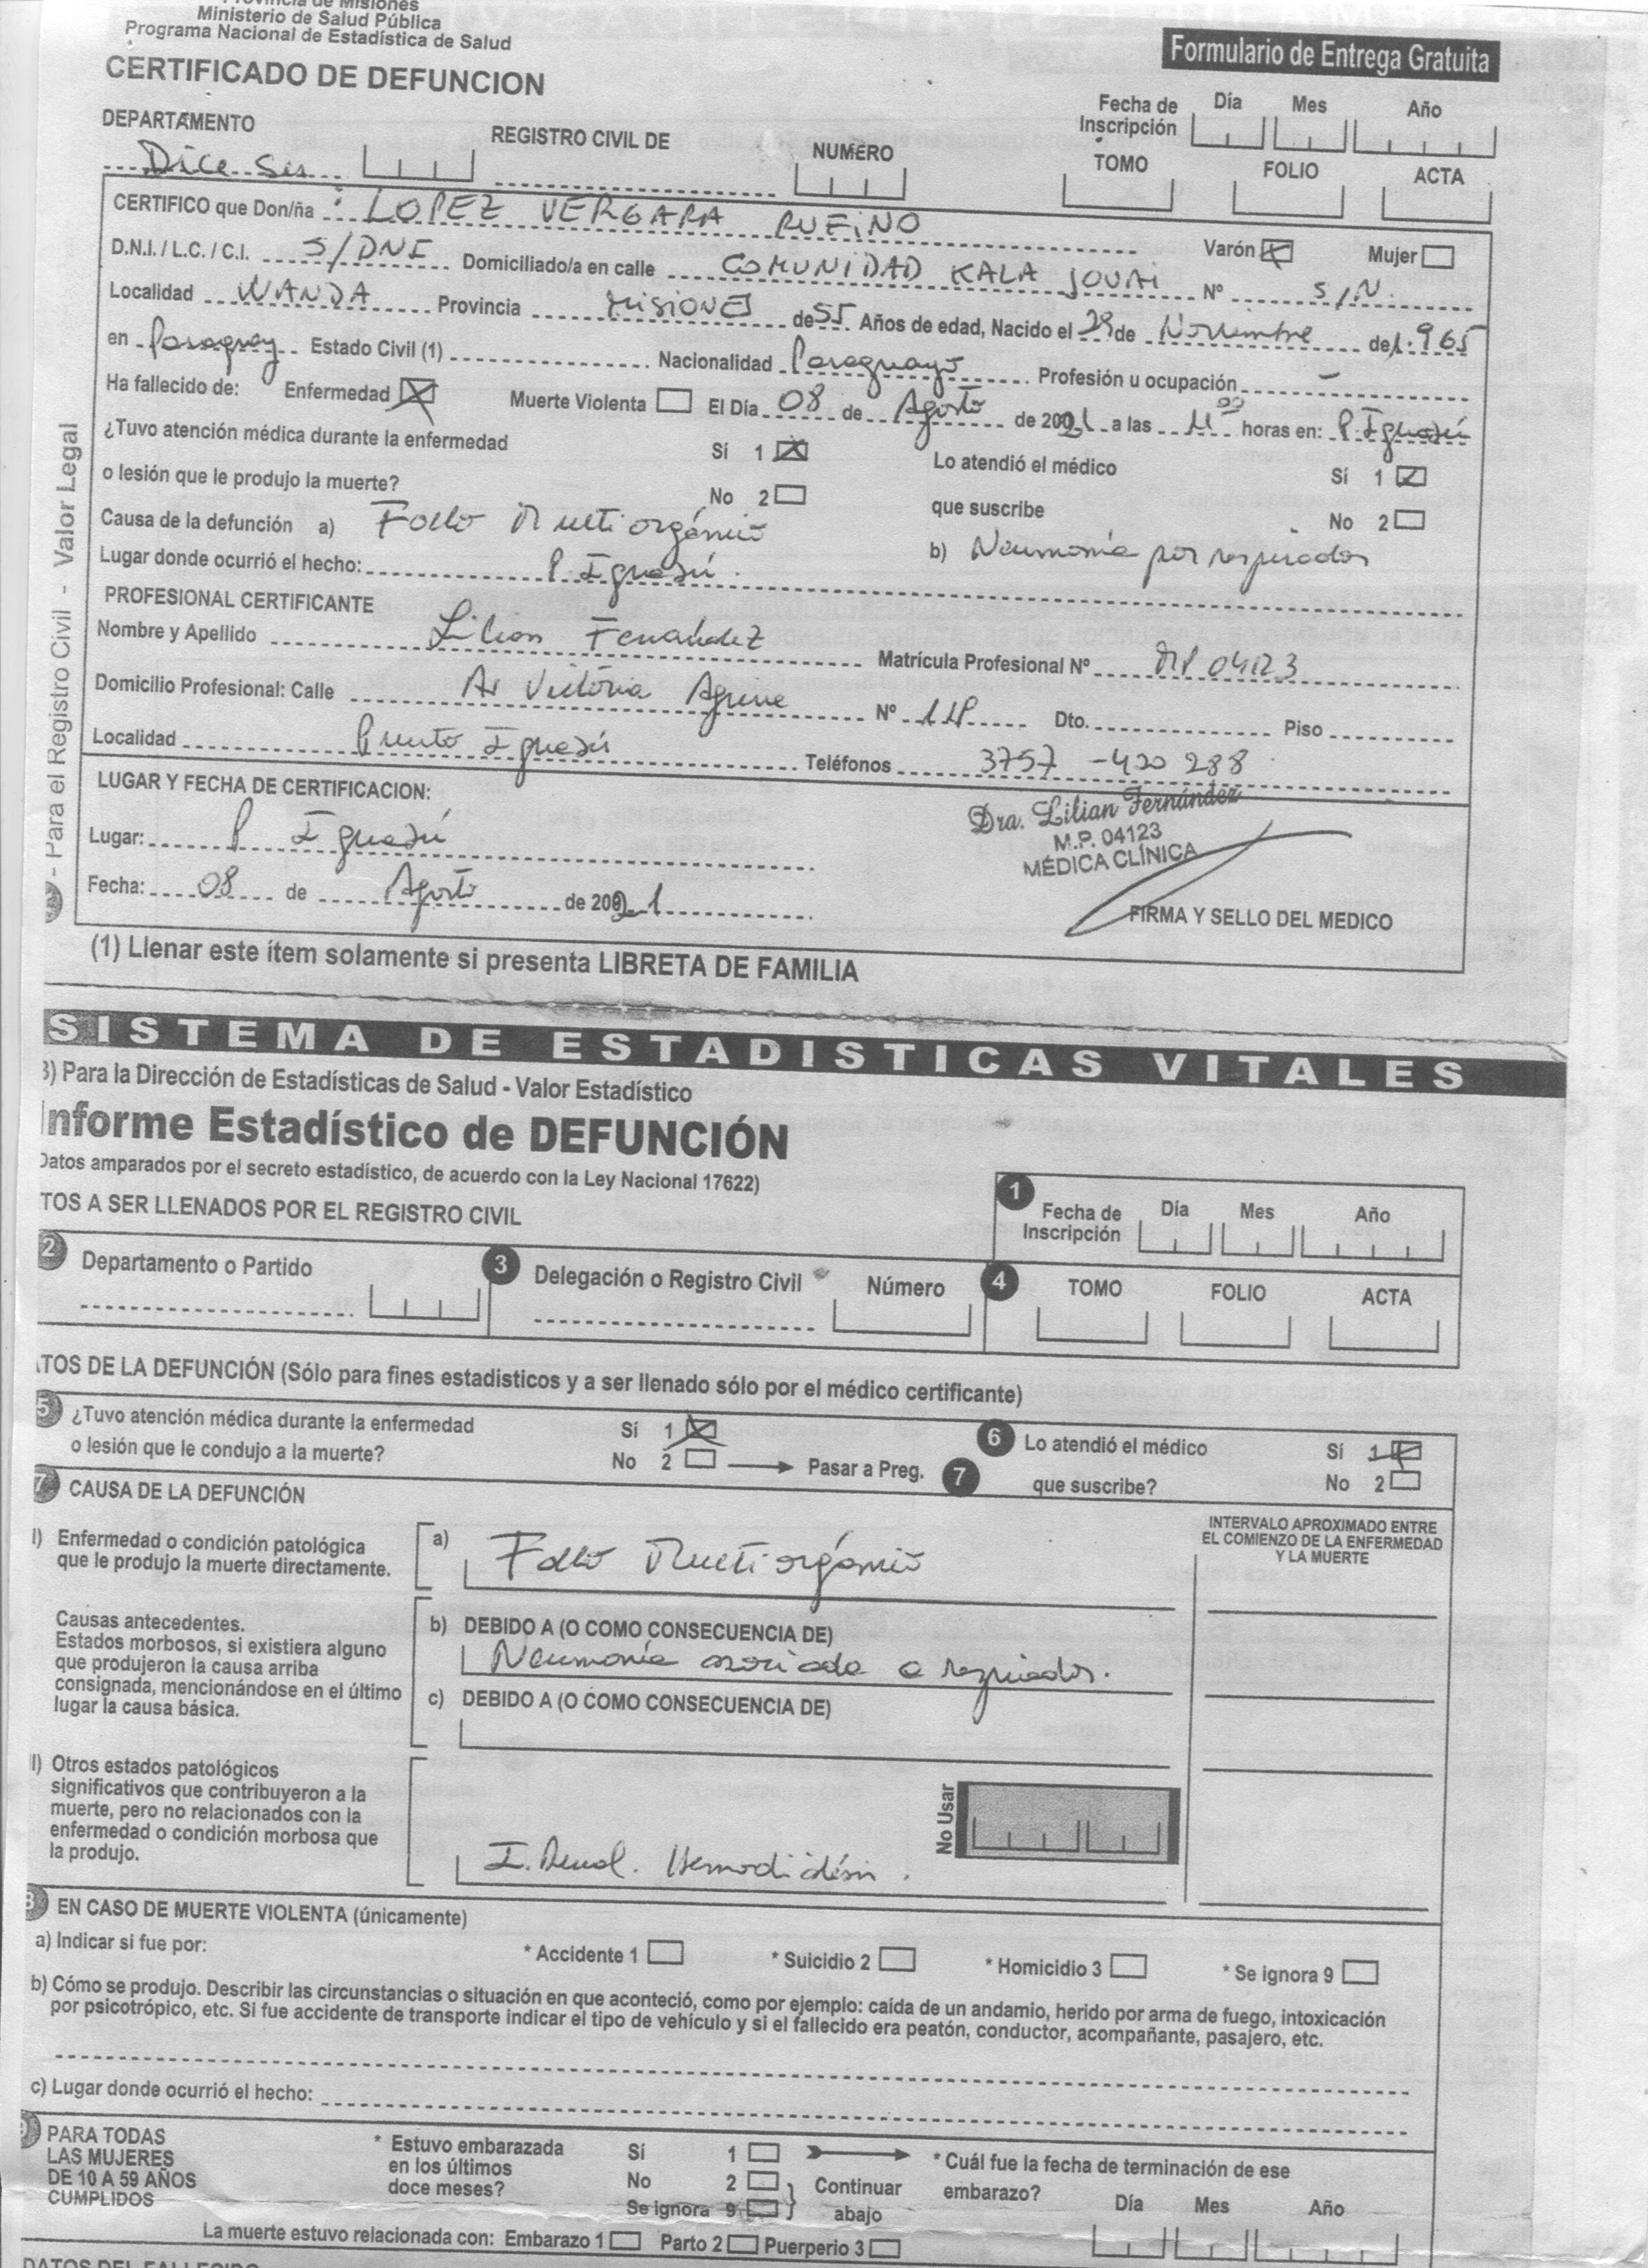 Provincia de Misiones
Ministerio de Salud Pública
Programa Nacional de Estadística de Salud
Formulario de Entrega Gratuita
CERTIFICADO DE DEFUNCION
Fecha de Inscripción Día Mes Año
DEPARTAMENTO REGISTRO CIVIL DE NUMERO TOMO FOLIO ACTA
Dice ser
CERTIFICO que Don/ña : LOPEZ VERGARA RUFINO
D.N.I. / L.C. / C.I. S/DNI Domiciliado/a en calle COMUNIDAD KALA Varón Mujer
Localidad WANDA Provincia MISIONES Nº S/N.
de 55 Años de edad, Nacido el 29 de Noviembre de 1.965
en Paraguay Estado Civil (1) Nacionalidad Paraguayo Profesión u ocupación -
Ha fallecido de: Enfermedad Muerte Violenta El Día 08 de Agosto de 2021 a las horas en: P Iguazú
¿Tuvo atención médica durante la enfermedad Sí 1 Lo atendió el médico Sí 1
o lesión que le produjo la muerte? No 2 que suscribe No 2
Causa de la defunción a) Fallo Multiorgánico b) Neumonía por respirador
Lugar donde ocurrió el hecho: P. Iguazú.
PROFESIONAL CERTIFICANTE
Nombre y Apellido Lilian Fernandez Matrícula Profesional Nº MP 04123
Domicilio Profesional: Calle Av Victoria Aguirre Nº Dto. Piso
Localidad Puerto Iguazú Teléfonos 3757 -420 288
LUGAR Y FECHA DE CERTIFICACION:
Lugar: P Iguazú
Fecha: 08 de Agosto de 2021
Dra. Lilian Fernández
M.P. 04123
MÉDICA CLÍNICA
FIRMA Y SELLO DEL MEDICO
- Para el Registro Civil - Valor Legal
(1) Llenar este ítem solamente si presenta LIBRETA DE FAMILIA
SISTEMA DE ESTADISTICAS VITALES
3) Para la Dirección de Estadísticas de Salud - Valor Estadístico
Informe Estadístico de DEFUNCIÓN
Datos amparados por el secreto estadístico, de acuerdo con la Ley Nacional 17622)
TOS A SER LLENADOS POR EL REGISTRO CIVIL
1 Fecha de Inscripción Día Mes Año
2 Departamento o Partido 3 Delegación o Registro Civil Número 4 TOMO FOLIO ACTA
ATOS DE LA DEFUNCIÓN (Sólo para fines estadisticos y a ser llenado sólo por el médico certificante)
5 ¿Tuvo atención médica durante la enfermedad Sí 1 6 Lo atendió el médico Sí 1
o lesión que le condujo a la muerte? No 2 Pasar a Preg. 7 que suscribe? No 2
7 CAUSA DE LA DEFUNCIÓN
INTERVALO APROXIMADO ENTRE
EL COMIENZO DE LA ENFERMEDAD
Y LA MUERTE
I) Enfermedad o condición patológica a) Fallo Multiorgánico
que le produjo la muerte directamente.
Causas antecedentes. b) DEBIDO A (O COMO CONSECUENCIA DE)
Estados morbosos, si existiera alguno Neumonía asociada a respirador.
que produjeron la causa arriba
consignada, mencionándose en el último c) DEBIDO A (O COMO CONSECUENCIA DE)
lugar la causa básica.
I) Otros estados patológicos
significativos que contribuyeron a la
muerte, pero no relacionados con la
enfermedad o condición morbosa que
la produjo.
I. Renal. Hemodiálisis.
No Usar
8 EN CASO DE MUERTE VIOLENTA (únicamente)
a) Indicar si fue por: * Accidente 1 * Suicidio 2 * Homicidio 3 * Se ignora 9
b) Cómo se produjo. Describir las circunstancias o situación en que aconteció, como por ejemplo: caída de un andamio, herido por arma de fuego, intoxicación
por psicotrópico, etc. Si fue accidente de transporte indicar el tipo de vehículo y si el fallecido era peatón, conductor, acompañante, pasajero, etc.
c) Lugar donde ocurrió el hecho:
PARA TODAS
LAS MUJERES
DE 10 A 59 AÑOS
CUMPLIDOS
* Estuvo embarazada
en los últimos
doce meses?
Sí 1
No 2
Se ignora 9
Continuar
abajo
* Cuál fue la fecha de terminación de ese
embarazo? Día Mes Año
La muerte estuvo relacionada con: Embarazo 1 Parto 2 Puerperio 3
DATOS DEL FALLECIDO